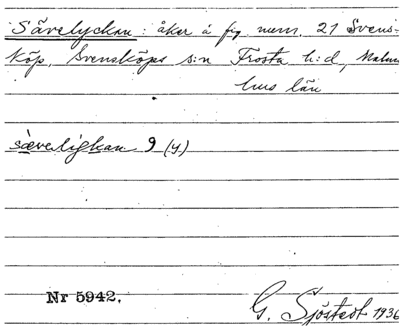 Sävelyckan: åker å fig. num. 21 Svens-
köp, Svensköps s:n Frosta h:d, Malmö-
hus län
sæveligkan 9 (y)
Nr 5942.
G. Sjöstedt 1936